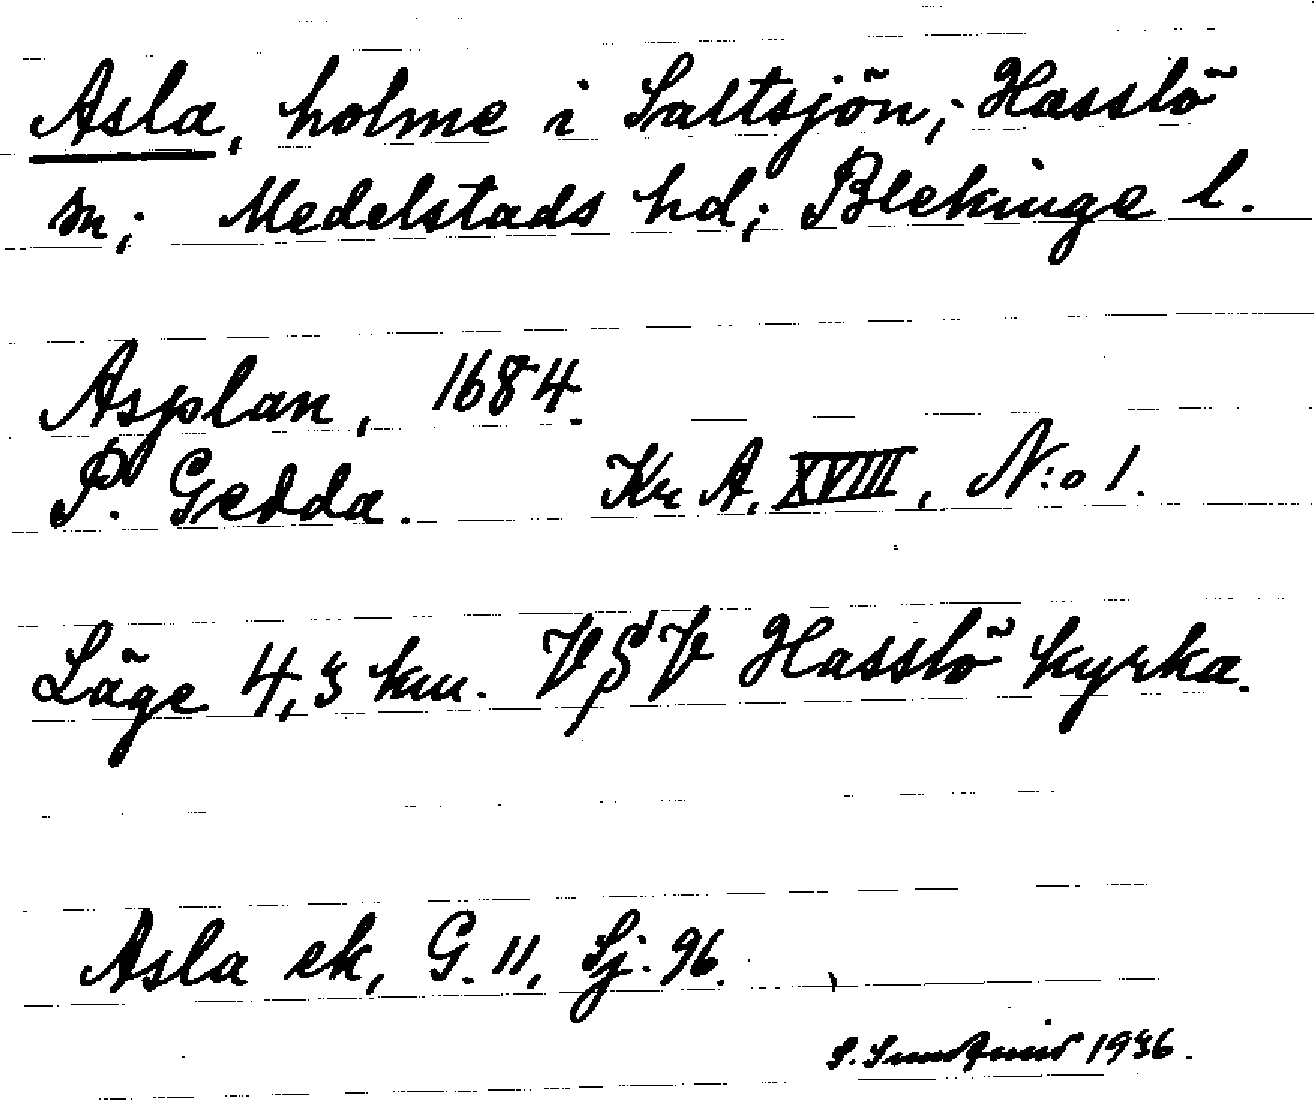 Asla, holme i Saltsjön; Hasslö
sn; Medelstads hd; Blekinge l.
Asplan, 1684.
P. Gedda. Kr A. XVIII, N:o 1.
Läge 4,3 km. VSV Hasslö kyrka.
Asla ek, G. 11, Sj. 96.
S. 1936.